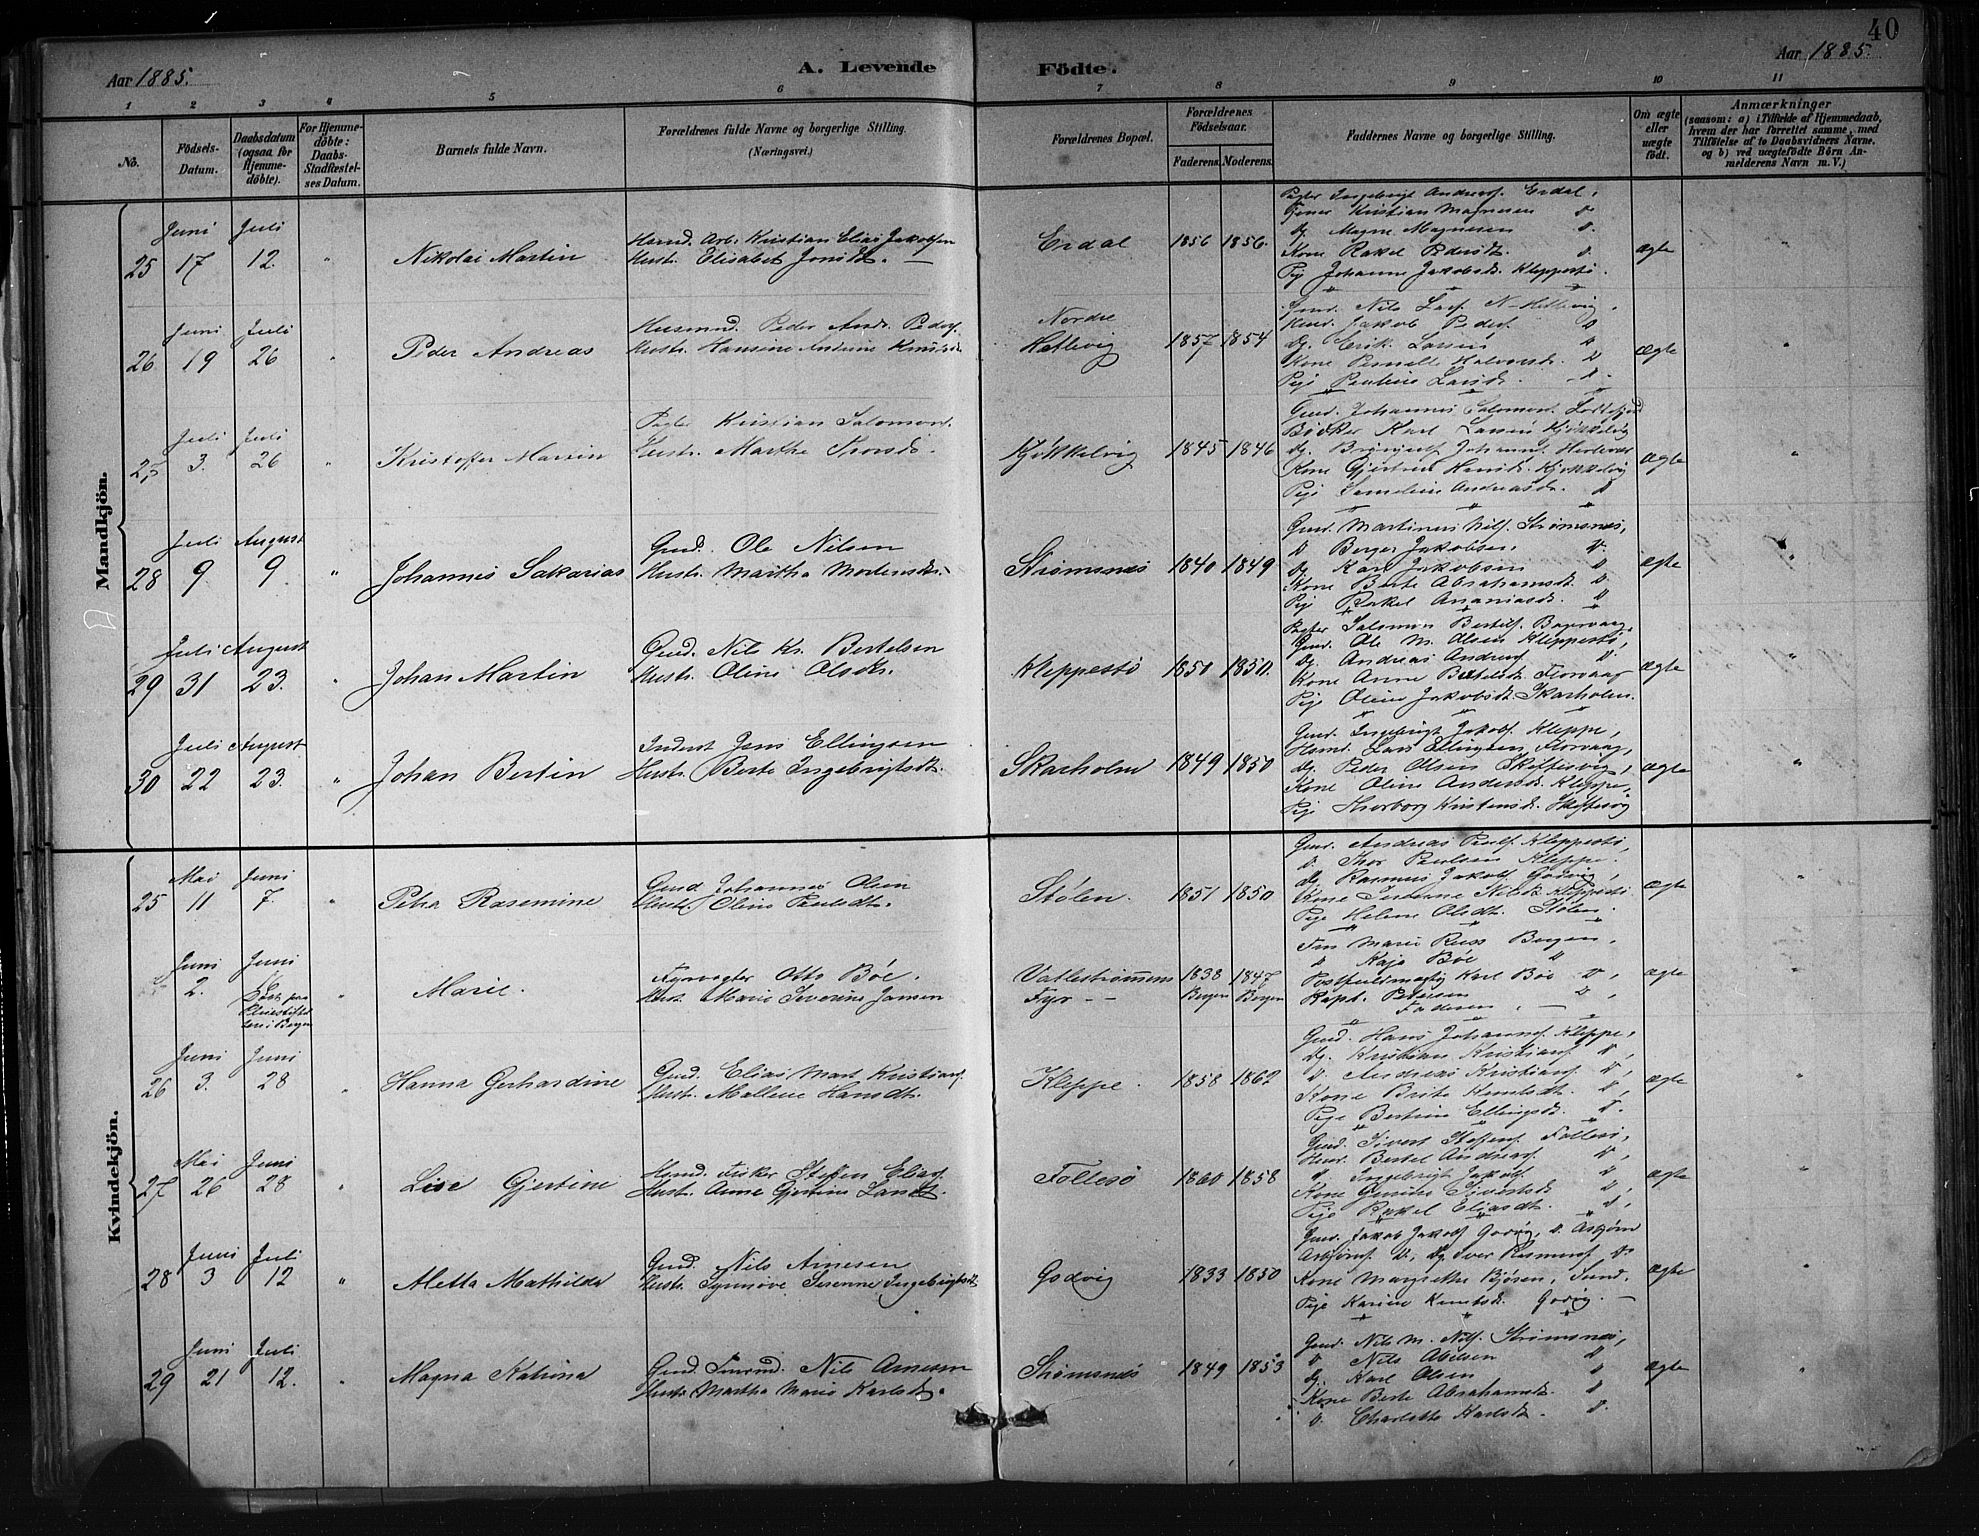 40
Aar 1885.
A. Levende
Födte.
Aar 1885.
1 2 3 4 5 6 7 8 9 10 11
No.
Födsels-Datum.
Daabsdatum (ogsaa for Hjemme-döbte).
For Hjemme-döbte: Daabs-Stadfæstel-ses Datum.
Barnets fulde Navn.
Forældrenes fulde Navne og borgerlige Stilling. (Næringsvei.)
Forældrenes Bopæl.
Forældrenes Födselsaar.
Faderens. Moderens.
Faddernes Navne og borgerlige Stilling.
Om ægte eller uægte födt.
Anmærkninger
(saasom: a) i Tilfælde af Hjemmedaab, hvem der har forrettet samme, med Tilföielse af to Daabsvidners Navne, og b) ved uægtefödte Börn An-melderens Navn m. V.)
Mandkjön.
25 Juni 17 Juli 12. " Nikolai Martin
Huusmd. Arb. Kristian Elias Jakobsen
Hustr. Elisabet Jonsdt.
Erdal 1856 1856. ægte
Ingebrigt Andreas. Erdal,
Kristian Magnesen
Magne Magnesen
Kone Rakel Pedersdt.
Pige Johanne Jakobsdt. Kleppestø.
26 Juni 19 Juli 26 " Peder Andreas
Husmnd. Peder Andr. Peders.
Hustr. Hansine Andrine Knudsdt.
Nordre Hetlevig 1857 1854 Ægte "
Gmd. Nils Lars. N-Hetlevig,
Jakob Peders.
Dg. Erik Larsen
Kone Pernille Halvorsdt.
Pige Larsdt.
Juli 3. Juli 26 " Kristoffer Martin
Kristian Salomons.
Hustr. Marthe Thorsdt.
Kjøkkelvig 1845 1846 Ægte "
Gmd. Johannes Salomons.
Bødker Karl Larsen Kjøkkelvig
Kone Gjertrud Hansdt. Kjøkkelvig
Pige Andreasdt.
28 Juli 9 August 9. " Johannes Sakarias
Gmd. Ole Nilsen
Hustr. Martha Mortensdt.
Strømsnes 1840 1849 Ægte "
Gmd. Martinus Nils. Strømsnes,
Berger Jakobsen
Dg. Karl Jakobsen
Kone Berte Abrahamsdt.
Pige Rakel Ananiasdt.
29 Juli 31 August 23. " Johan Martin
Gmd. Nils Kr. Bertelsen
Hustr. Oline Olsdt.
Kleppestø 1850 1850. Ægte "
Salomon Bertels.
Gmd. Ole M. Olsen Kleppestø,
Dg. Andreas Andreas.
Kone Anne Bertelsdt. Florvaag
Pige Oline Jakobsdt. Skarholm.
30 Juli 22 August 23. " Johan Bertin
Inderst Jens Ellingsen
Hustr. Berte Ingebrigtsdt.
Skarholm 1849 1850 Ægte "
Gmd. Ingebrigt Jakobs. Kleppe,
Lars Ellingsen Florvaag,
Dg. Peder Olsen
Kone Oline Andersdt. Kleppe,
Pige Thorborg Kristensdt.
Kvindekjön.
25 Mai 11 Juni 7. " Petra Rasmine
Gmd Johannes Olsen
Hustr. Oline Paulsdt.
Stølen. 1851 1850 Ægte "
Gmd. Andreas Pauls. Kleppestø,
Thor Paulsen Kleppe.
Dg. Rasmus Jakobs. Godvig,
Kone Nilsdt. Kleppestø
Pige Helene Olsdt. Stølen.
Juni 2. Juni " Marie.
Døbt paa Pleiestiftelsen i Bergen
Fyrvogter Otto Bøe.
Hustr. Marie Severine Jansen
Vatlestrømmens Fyr 1838 Bergen 1847 Bergen Ægte
Fru Marie Russ Bergen,
Kaja Bøe
Postfuldmægtig Karl Bøe
Kapt. Petersen
Faderen
26 Juni 3. Juni 28 " Hanna Gerhardine
Gmd. Elias Mart. Kristians.
Hustr. Mallene Hansdt.
Kleppe. 1858 1862 Ægte "
Gmd. Hans Johannes. Kleppe,
Dg. Kristian Kristians.
Andreas Kristians.
Kone Brite Knudsdt.
Pige Bertine Ellingsdt.
27 Mai 26 Juni 28 " Lise Gjertine
Fisker Steffen Elias.
Hustr. Anne Gjertine Larsdt.
Follesø 1860 1858 Ægte "
Gmd. Sivert Steffens. Follesø,
Bertel Andreas.
Ingebrigt Jakobs.
Kone Sivertsdt.
Pige Rakel Eliasdt.
28 Juni 3 Juli 12 " Aletta Mathilda
Gmd. Nils Arnesen
Hustr. Synnøve Severine Ingebrigtsdt
Godvig 1833 1850 Ægte "
Gmd. Jakob Jakobs. Godvig, Asbjørn
Asbjørns. Dg. Iver Rasmus.
Kone Margrethe Bjøsen, Sund.
Pige Karine Knudsdt. Godvig.
29 Juni 21 Juli 12. " Magna Katrina
Gmd Nils Arnesen
Hustr. Martha Marie Karlsdt.
Strømsnes 1849 1853 Ægte "
Gmd. Nils M. Nils. Strømsnes,
Nils Abelsen
Dg. Karl Olsen
Kone Berte Abrahamsdt.
Charlotte Karlsdt.